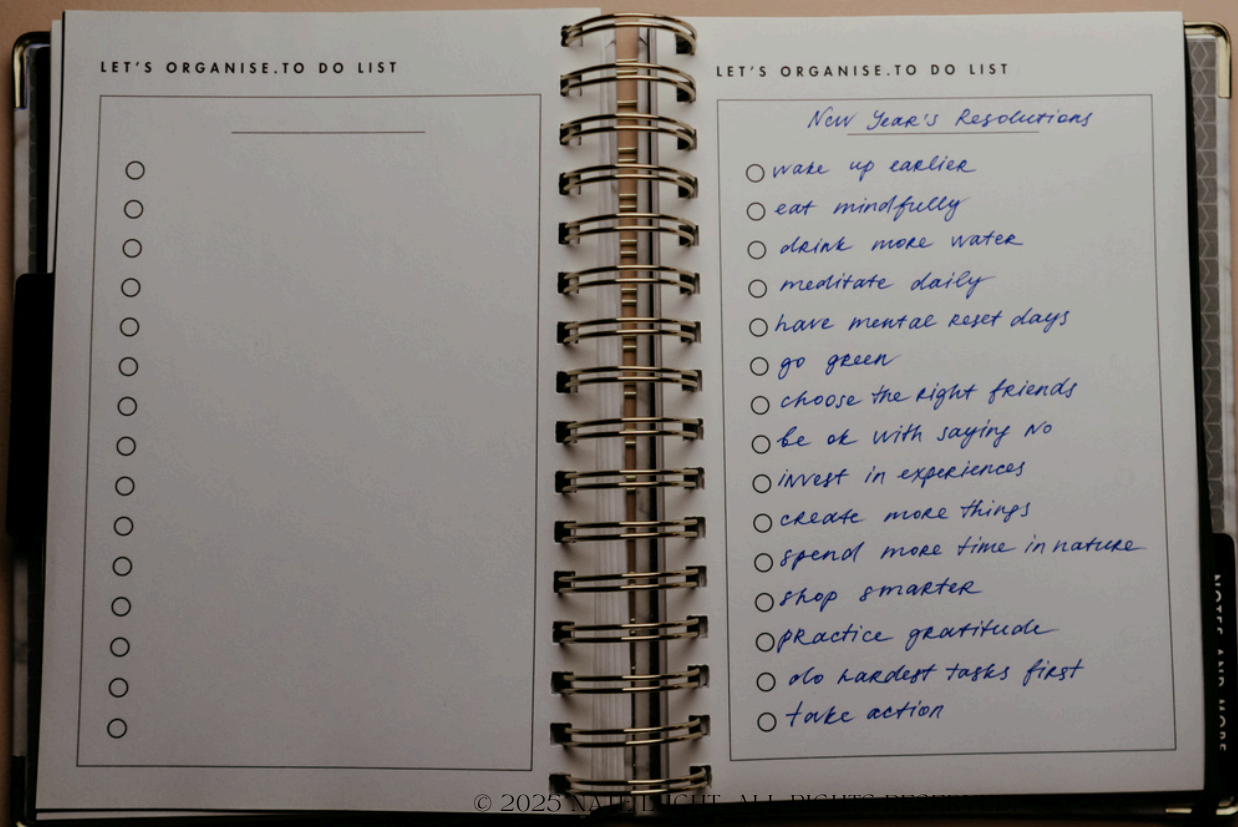 LET'S ORGANISE.TO DO LIST
LET'S ORGANISE.TO DO LIST
New Year's Resolutions
wake up earlier
eat mindfully
drink more water
meditate daily
have mental reset days
go green
choose the right friends
be ok with saying No
invest in experiences
create more things
spend more time in nature
shop smarter
practice gratitude
do hardest tasks first
take action
NOTES AND MORE
© 2025 ALL RIGHTS